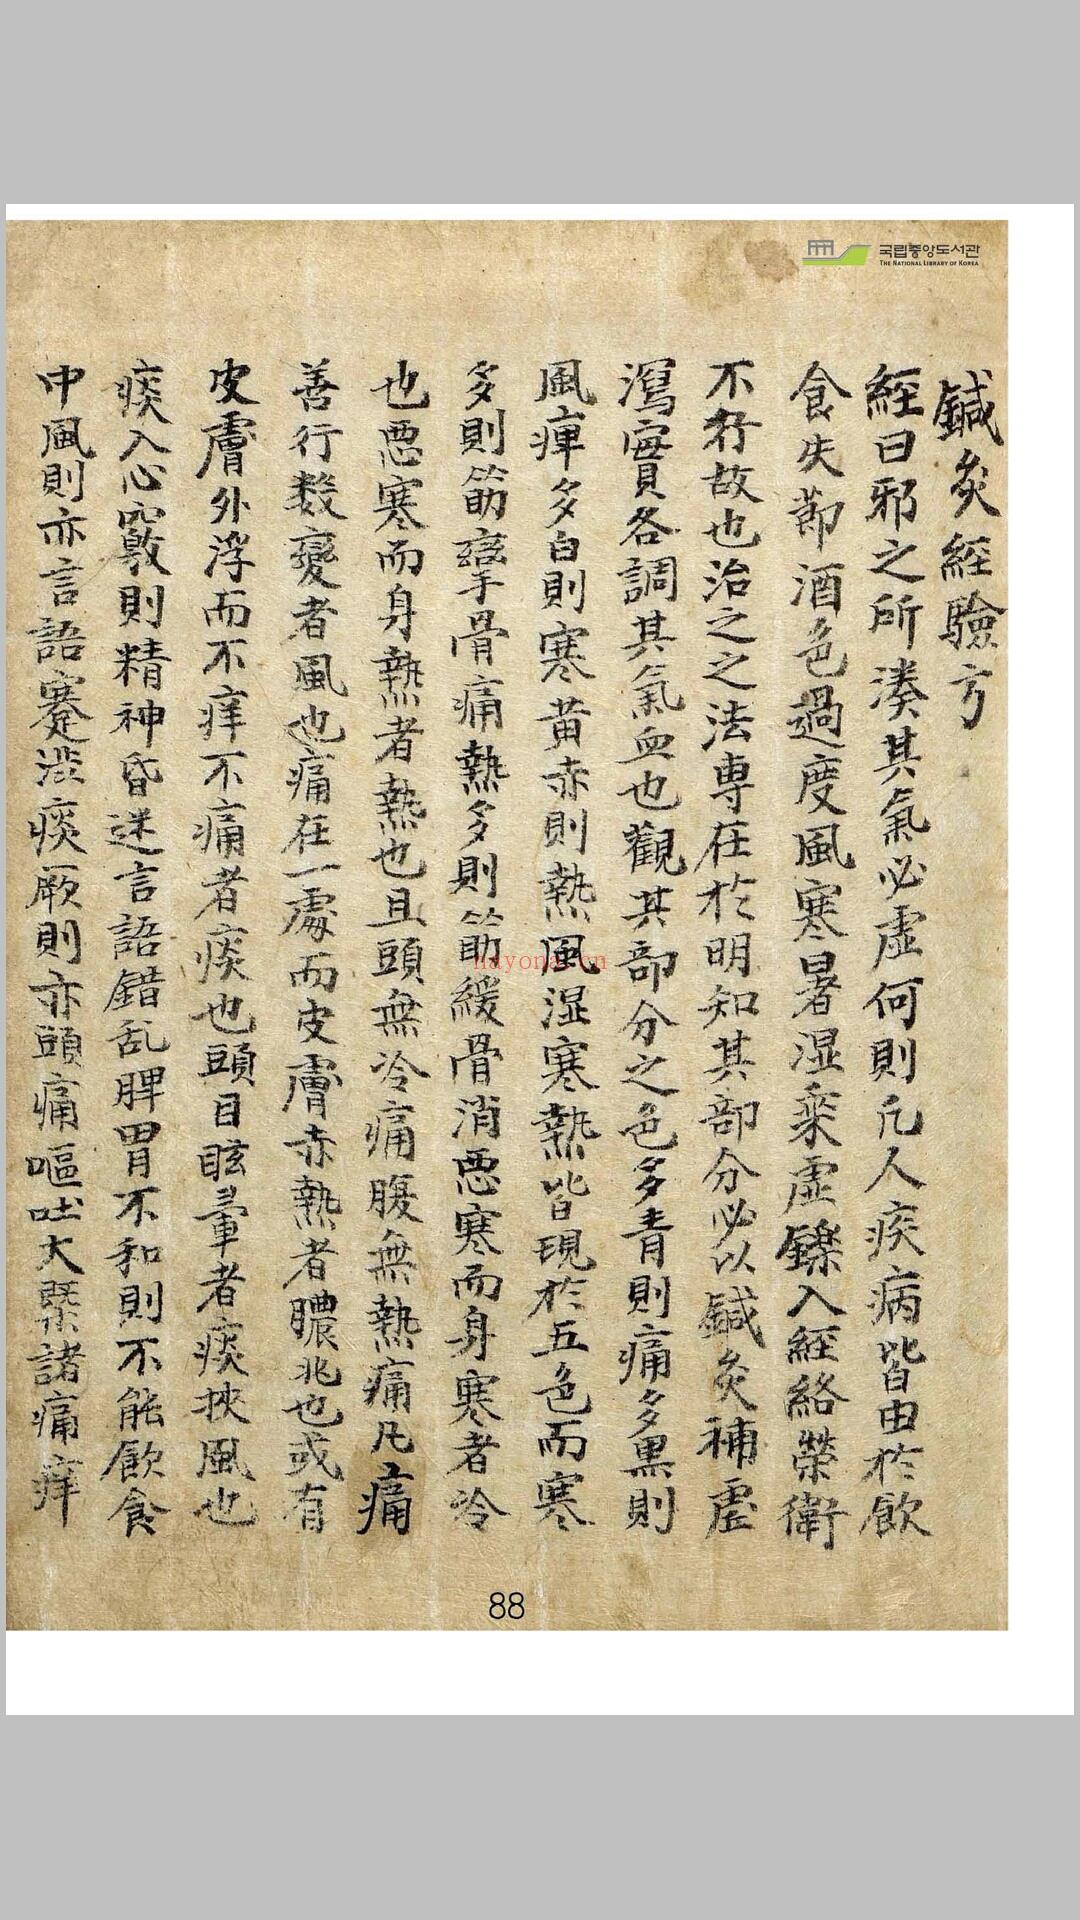 국립중앙도서관
THE NATIONAL LIBRARY OF KOREA
鍼灸經驗方
經曰邪之所湊其氣必虛何則凡人疾病皆由於飮
食失節酒色過度風寒暑湿乘虛鑠入經絡榮衛
不行故也治之之法專在於明知其部分必以鍼灸補虛
瀉實各調其氣血也觀其部分之色多青則痛多黑則
風痺多白則寒黃赤則熱風湿寒熱皆現於五色而寒
多則筋攣骨痛熱多則筋緩骨消惡寒而身寒者冷
也惡寒而身熱者熱也且頭無冷痛腹無熱痛凡痛
善行数變者風也痛在一處而皮膚赤熱者膿兆也或有
皮膚外浮而不痒不痛者痰也頭目眩暈者痰挾風也
痰入心竅則精神昏迷言語錯乱脾胃不和則不能飮食
中風則亦言語蹇澁痰厥則亦頭痛嘔吐大槩諸痛痒
nayona.cn
88